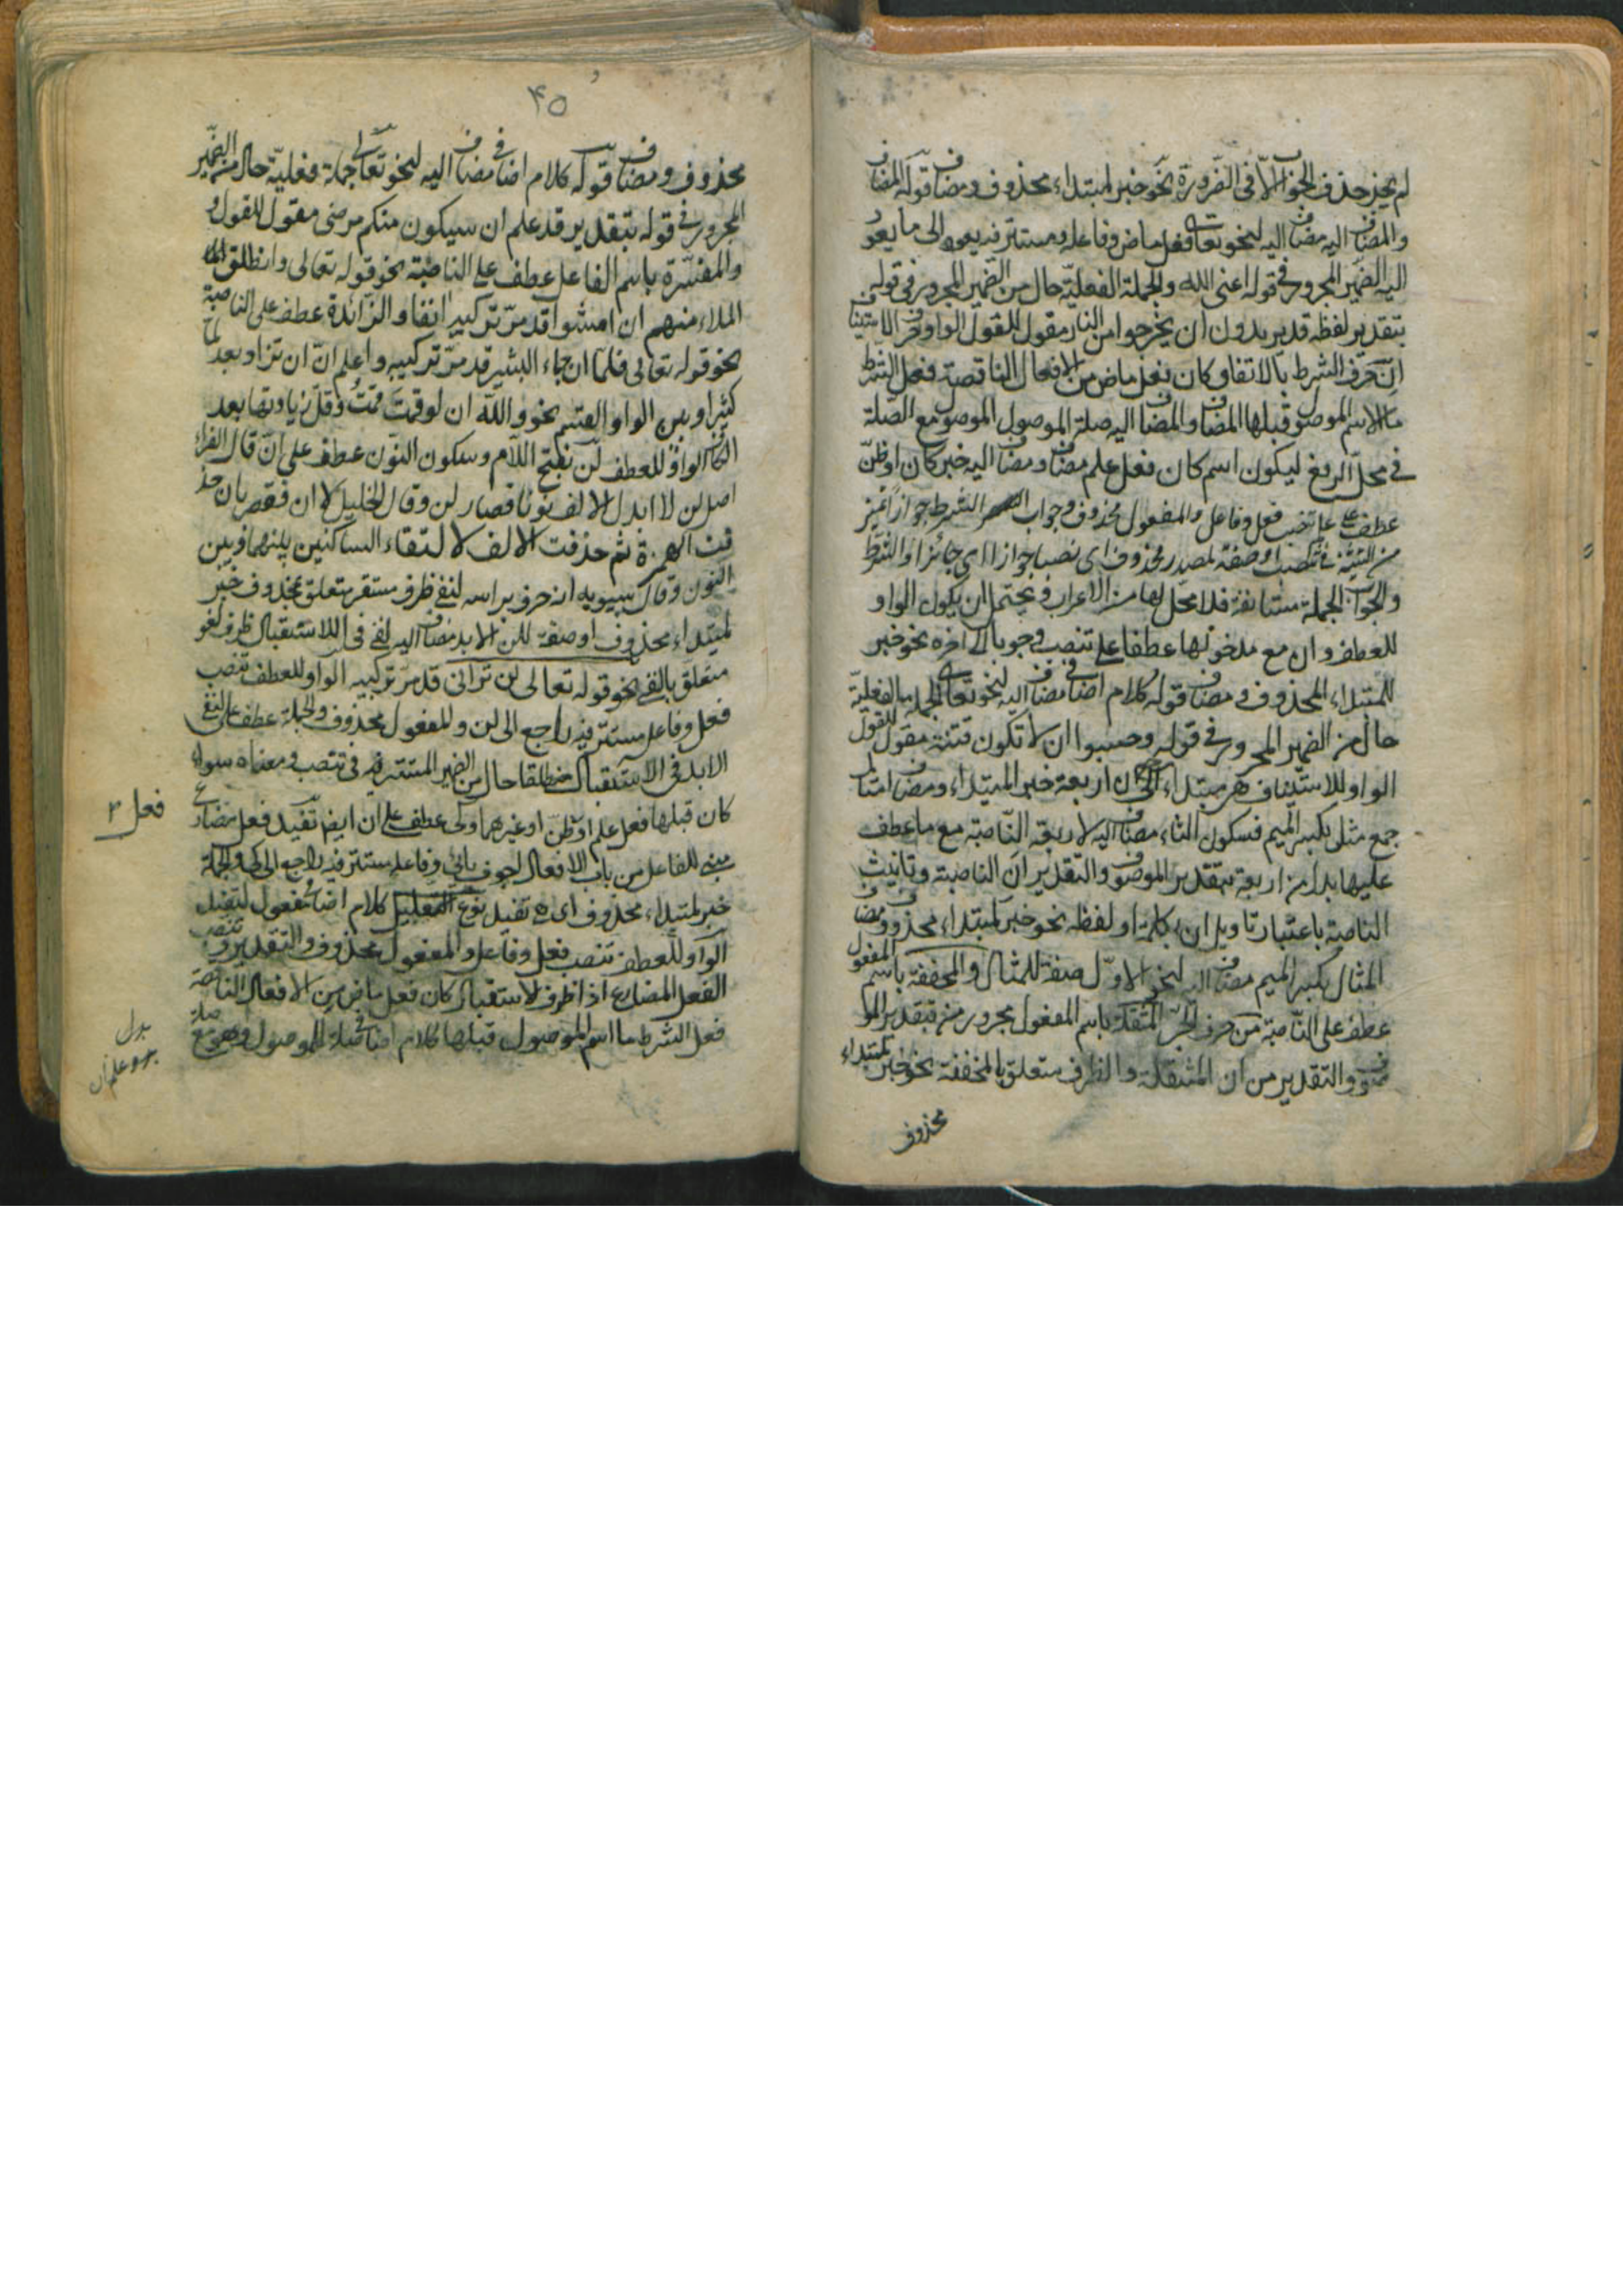 لم يجز حذف الجواب الا فى الضرورة نحو خبر لمبتداء محذوف ومضاف قوله المضاف
والمضاف اليه مضاف اليه لنحو تعالى فعل ماض وفاعله مستتر فيه يعود الى ما يعود
اليه الضمير المجرور فى قوله اعنى الله والجملة الفعلية حال من الضمير المجرور فى قوله
بتقدير لفظه قد يريدون ان يخرجوا من النار مقول للقول الواو حرف الاستيناف
ان حرف الشرط بالاتفاق كان فعل ماض من الافعال الناقصة فعل الشرط
ما الاسم الموصول قبلها المضاف والمضاف اليه صلة الموصول الموصول مع الصلة
فى محل الرفع ليكون اسم كان فعل علم مضاف ومضاف اليه خبر كان او ظن
عطف على تنصب فعل وفاعل والمفعول محذوف وجواب الشرط جوازا تميز
من النسبة فى تنصب او صفة لمصدر محذوف اى نصبا جوازا اى جائزا والشرط
والجواب الجملة مستانفة فلا محل لها من الاعراب ويحتمل ان يكون الواو
للعطف وان مع مدخولها عطفا على تنصب وجوبا الى اخره نحو خبر
للمبتداء المحذوف ومضاف قوله كلام اضافى مضاف اليه لنحو تعالى الجملة الفعلية
حال من الضمير المجرور فى قوله وحسبوا ان لا تكون فتنة مقول للقول
الواو للاستيناف هر مبتداء اربعة خبر المبتداء ومضاف امثال
جمع مثل بكسر الميم فسكون الثاء مضاف اليه لاربعة الناصبة مع ما عطف
عليها بدل من اربعة بتقدير الموصوف والتقدير ان الناصبة وتانيث
الناصبة باعتبار تاويل ان بكلمة او لفظه نحو خبر لمبتداء محذوف ومضاف
المثال بكسر الميم مضاف اليه لنحو الاول صفة للمثال والمخففة باسم المفعول
عطف على الناصبة من حرف الجر المثقلة باسم المفعول مجرور من بتقدير المو
صوف والتقدير من ان المثقلة والظرف متعلق بالمخففة نحو خبر لمبتداء
محذوف
۴۵
محذوف ومضاف قوله كلام اضافى مضاف اليه لنحو تعالى جملة فعلية حال من الضمير
المجرور فى قوله بتقدير قد علم ان سيكون منكم مرضى مقول للقول و
والمفسرة باسم الفاعل عطف على الناصبة نحو قوله تعالى وانطلق
الملاء منهم ان امشوا قد مر تركيبه انفا والزائدة عطف على الناصبة
نحو قوله تعالى فلما ان جاء البشير قد مر تركيبه واعلم ان ان تزاد بعد لما
كثيرا وبين الواو القسم نحو والله ان لو قمت قمت وقل زيادتها بعد
الكاف الواو للعطف لن بفتح اللام وسكون النون عطف على ان قال الفراء
اصل لن لا ابدل الالف نونا فصار لن وقال الخليل لا ان فقصر بان حذ
فت الهمزة ثم حذفت الالف لالتقاء الساكنين بينها وبين
النون وقال سيبويه انه حرف براسه لنفى ظرف مستقر متعلق بمحذوف خبر
لمبتداء محذوف او صفة للن الابد مضاف اليه لنفى فى الاستقبال ظرف لغو
متعلق بالنفى نحو قوله تعالى لن ترانى قد مر تركيبه الواو للعطف تنصب
فعل وفاعل مستتر فيه راجع الى لن والمفعول محذوف والجملة عطف على النفى
الابد فى الاستقبال مطلقا حال من الضمير المستتر فيه فى تنصب ومعناه سواء
كان قبلها فعل علم او ظن او غيرهما وكى عطف على ان ايضا تفيد فعل مضارع
مبنى للفاعل من باب الافعال اجوف يائى وفاعله مستتر فيه راجع الى كى والجملة
خبر لمبتداء محذوف اى هى تفيد نوع التعليل كلام اضافى مفعول لتفيد
الواو للعطف تنصب فعل وفاعل والمفعول محذوف والتقدير وتنصب
الفعل المضارع اذا ظرف لاستقبال كان فعل ماض من الافعال الناقصة
فعل الشرط ما اسم الموصول قبلها كلام اضافى صلة الموصول وهو مع صلة
فعل ۳
بدل